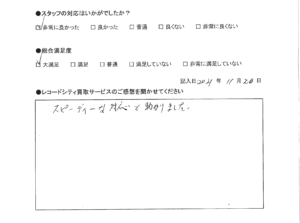 ●スタッフの対応はいかがでしたか？
□ 非常に良かった □ 良かった □ 普通 □ 良くない □ 非常に良くない
●総合満足度
□ 大満足 □ 満足 □ 普通 □ 満足していない □ 非常に満足していない
記入日 2021 年 11 月 20 日
●レコードシティ買取サービスのご感想を聞かせてください
スピーディーな対応で助かりました。